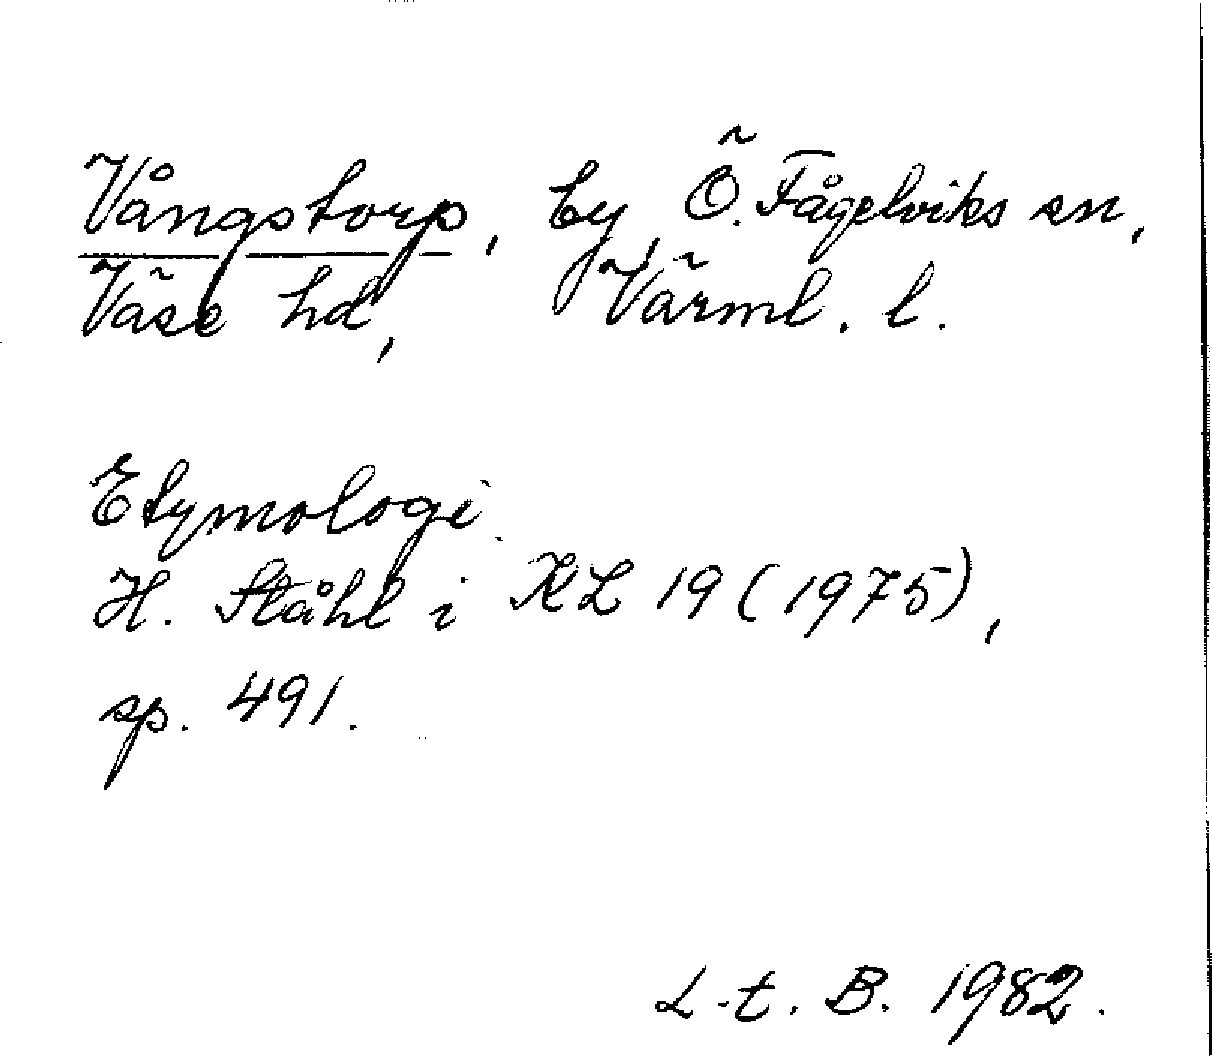 Vångstorp, by, Ö. Fågelviks sn,
Väse hd, Värml. l.
Etymologi.
H. Ståhl i KL 19 (1975),
sp. 491.
L-t. B. 1982.